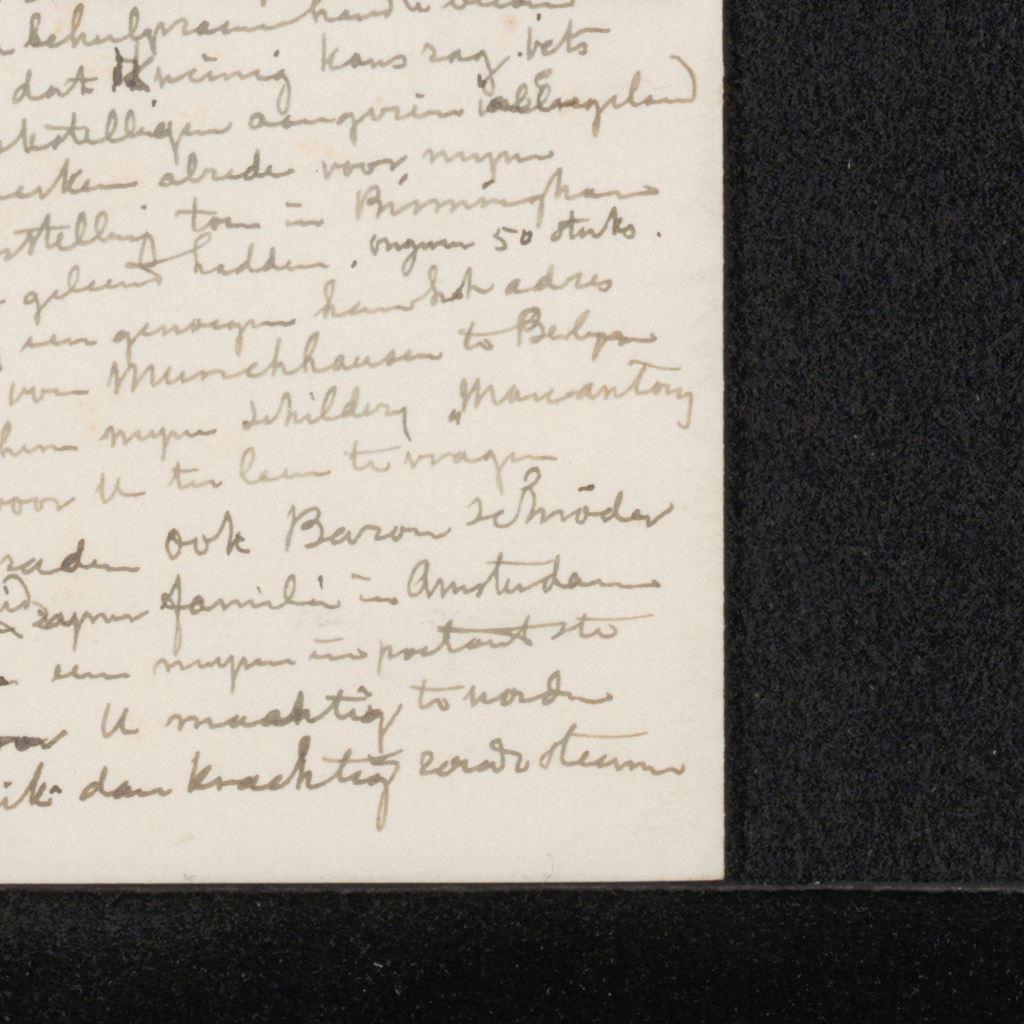 behulpzaam
dat ik weinig kans zag iets
aangezien in Engeland)
werken alrede voor mijn
stelling toen in Birmingham
geleend hadden. ongeveer 50 stuks.
een genoegen kan het adres
von Munchhausen te Berlijn
hem mijn schilderij „Marc Antony
voor U ter leen te vragen
raden ook Baron Schröder
zijner familie in Amsterdam
een mijner important ste
voor U machtig te worden
ik dan krachtig zoude steunen